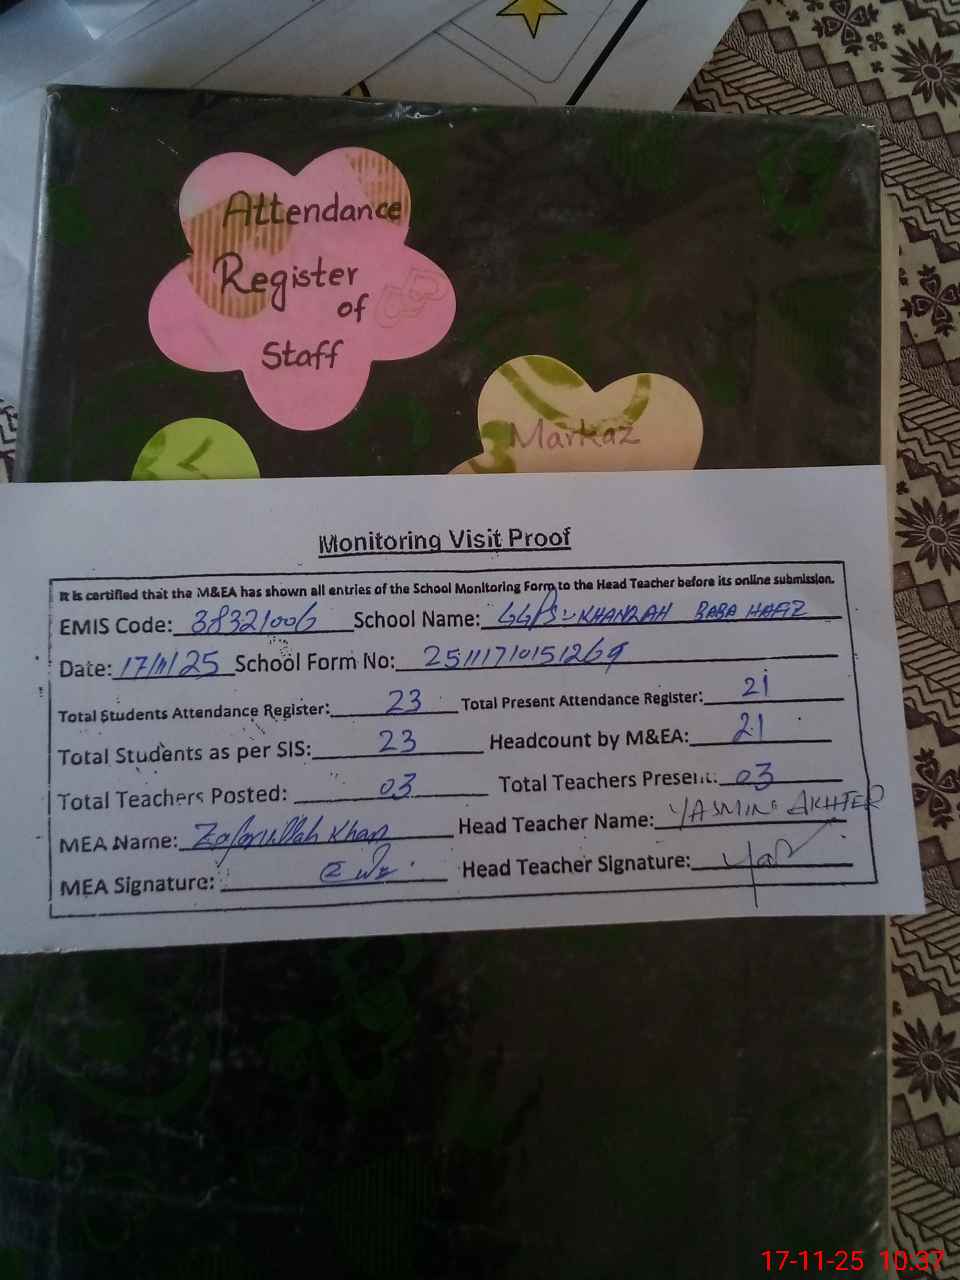 Attendance
Register
of
Staff
Markaz
Monitoring Visit Proof
It is certified that the M&EA has shown all entries of the School Monitoring Form to the Head Teacher before its online submission.
EMIS Code: 38321006 School Name: GGPS KHANZAH BABA HAFIZ
Date: 17/11/25 School Form No: 25111710151269
Total Students Attendance Register: 23 Total Present Attendance Register: 21
Total Students as per SIS: 23 Headcount by M&EA: 21
Total Teachers Posted: 03 Total Teachers Present: 03
MEA Name: Zafarullah Khan Head Teacher Name: YASMINE AKHTER
MEA Signature: Head Teacher Signature:
17-11-25 10:37